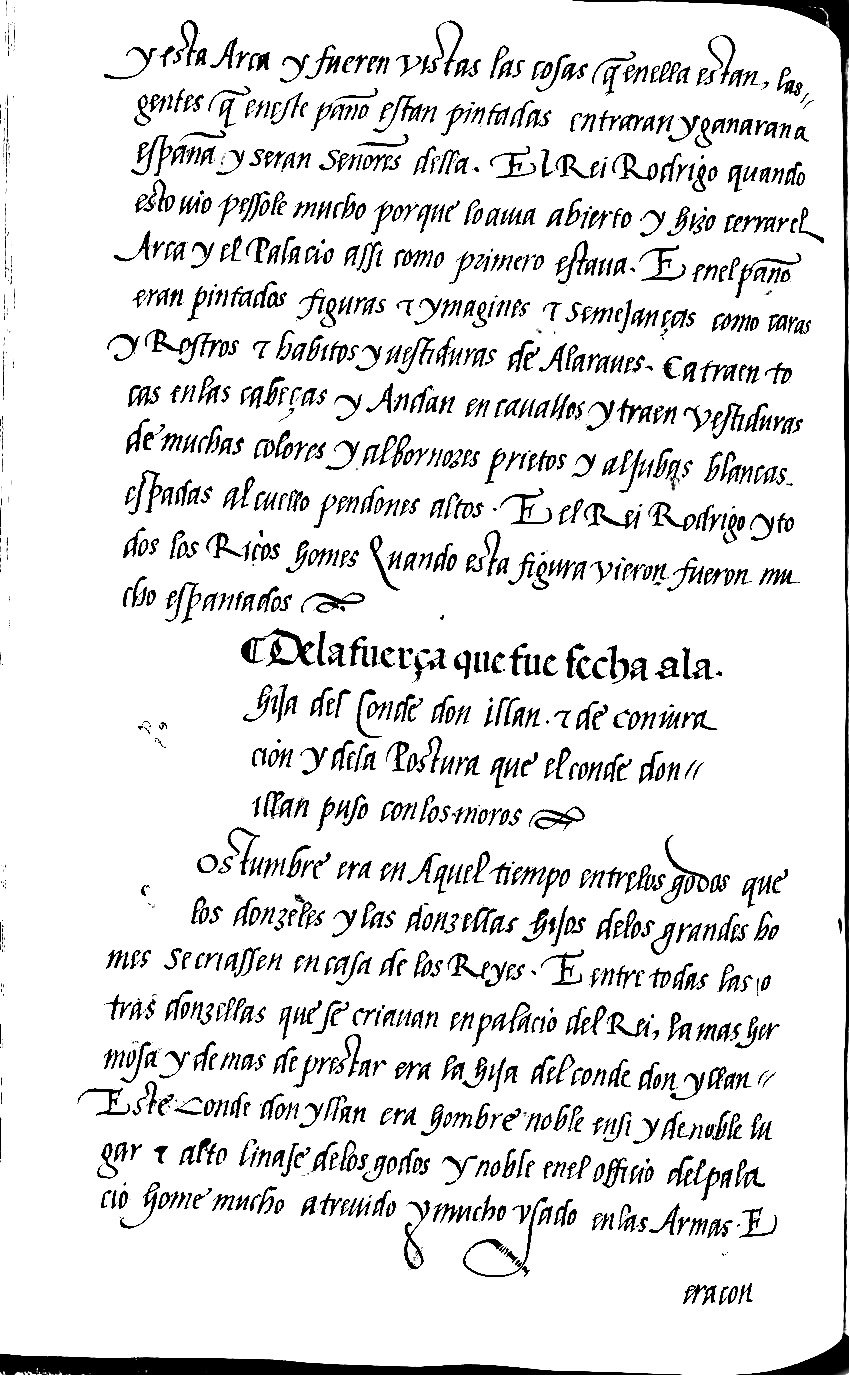 y esta Arca y fueren vistas las cosas q̃ enella estan, las
gentes q̃ eneste paño estan pintadas entraran y ganaran a
españa y seran señores della. E l Rei Rodrigo quando
esto uio pessole mucho porque lo auia abierto y hizo cerrar el
Arca y el Palacio assi como primero estaua. E enel paño
eran pintados figuras ⁊ ymagines ⁊ semejanças como caras
y Rostros ⁊ habitos y uestiduras de Alaraues. Ca traen to
cas enlas cabeças y Andan en cauallos y traen vestiduras
de muchas colores y albornozes prietos y aljubas blancas.
espadas al cuello pendones altos. E el Rei Rodrigo y to
dos los Ricos homes Quando esta figura vieron fueron mu
cho espantados
¶ De la fuerça que fue fecha a la.
hija del Conde don illan. ⁊ de coniura
ción y dela Postura que el conde don //
illan puso con los moros
Ostumbre era en Aquel tiempo entre los godos que
c
los donzeles y las donzellas hijos delos grandes ho
mes se criassen en casa de los Reyes. E entre todas las o
tras donzellas que se criauan en palacio del Rei, la mas her
mosa y de mas de prestar era la hija del conde don yllan //
Este Conde don yllan era hombre noble ensi y de noble lu
gar ⁊ alto linaje delos godos y noble enel officio del pala
cio home mucho atreuido y mucho vsado enlas Armas. E
era con